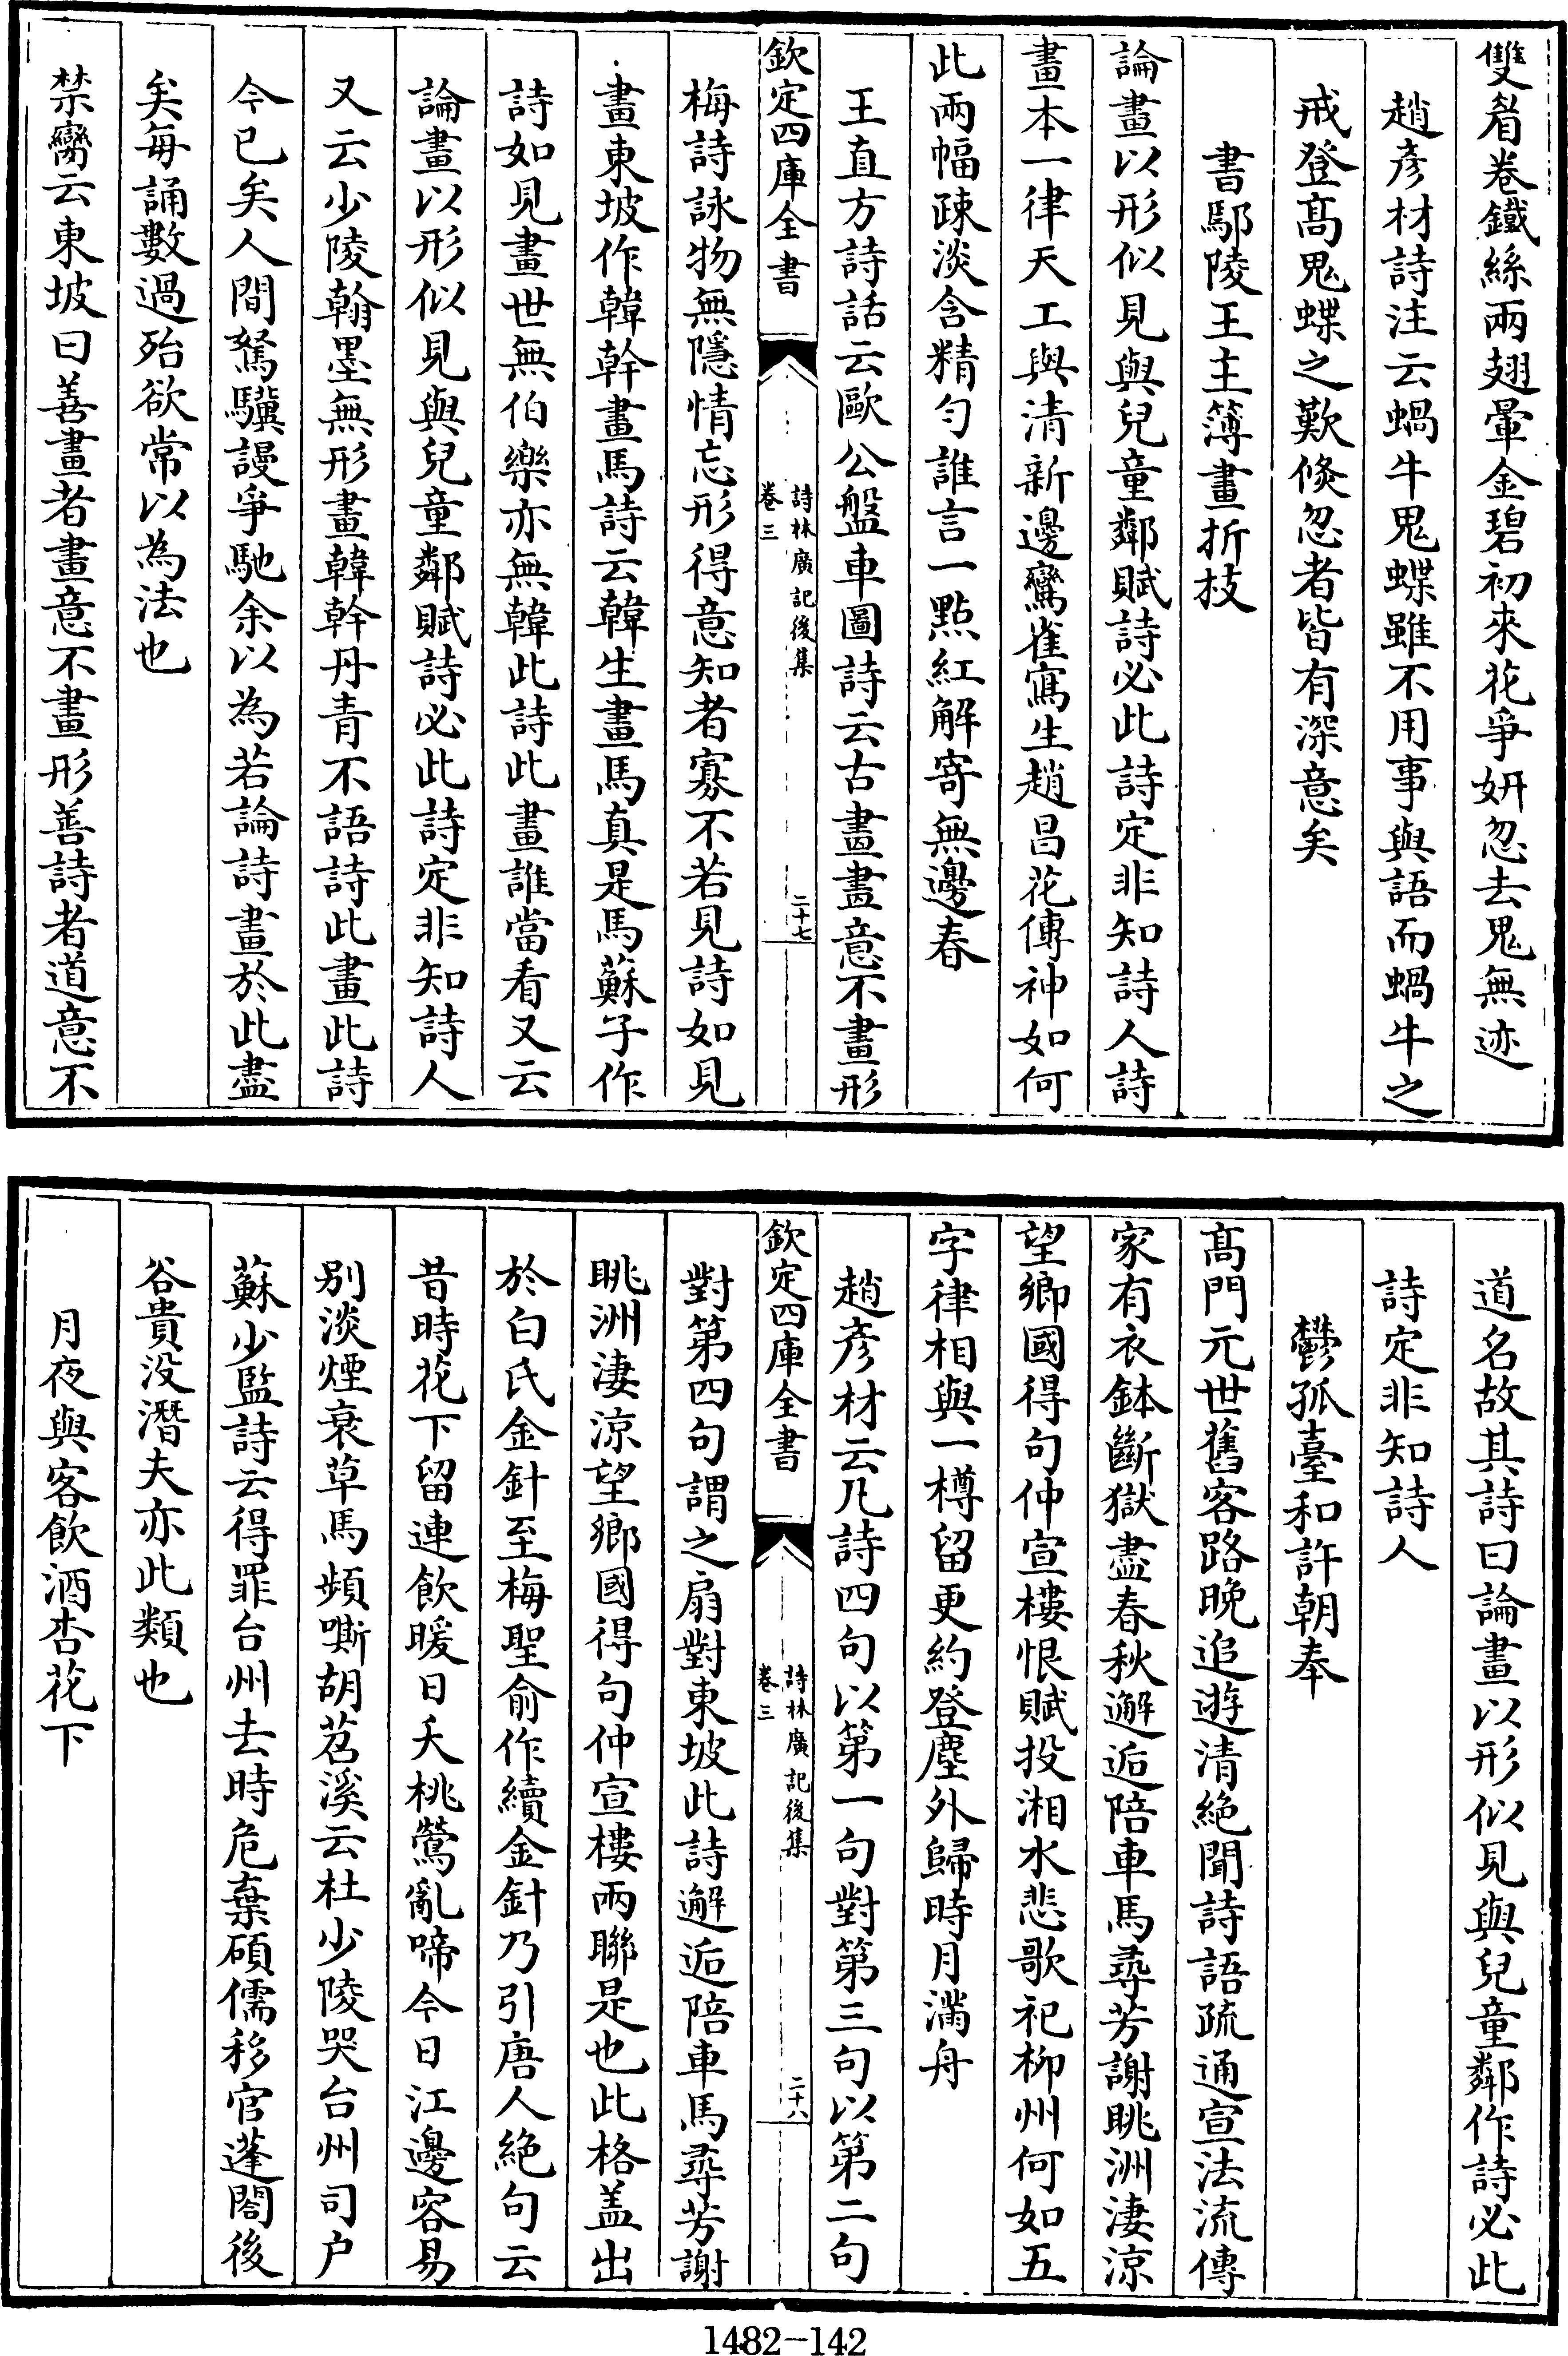 雙眉卷鐵絲兩翅暈金碧初來花爭妍忽去鬼無迹
趙彥材詩注云蝸牛鬼蝶雖不用事與語而蝸牛之
戒登髙鬼蝶之歎倐忽者皆有深意矣
書鄢陵王主簿畫折枝
論畫以形似見與兒童鄰賦詩必此詩定非知詩人詩
畫本一律天工與清新邊鸞雀寫生趙昌花傳神如何
此兩幅疎淡含精勻誰言一點紅解寄無邊春
王直方詩話云歐公盤車圖詩云古畫畫意不畫形
欽定四庫全書
詩林廣記後集
卷三
二十七
梅詩詠物無隱情忘形得意知者寡不若見詩如見
畫東坡作韓幹畫馬詩云韓生畫馬真是馬蘇子作
詩如見畫世無伯樂亦無韓此詩此畫誰當看又云
論畫以形似見與兒童鄰賦詩必此詩定非知詩人
又云少陵翰墨無形畫韓幹丹青不語詩此畫此詩
今已矣人間駑驥謾爭馳余以為若論詩畫於此盡
矣每誦數過殆欲常以為法也
禁臠云東坡曰善畫者畫意不畫形善詩者道意不
道名故其詩曰論畫以形似見與兒童鄰作詩必此
詩定非知詩人
鬱孤臺和許朝奉
髙門元世舊客路晚追遊清絶聞詩語疏通宣法流傳
家有衣鉢斷獄盡春秋邂逅陪車馬尋芳謝眺洲淒涼
望鄉國得句仲宣樓恨賦投湘水悲歌祀柳州何如五
字律相與一樽留更約登塵外歸時月滿舟
趙彥材云凡詩四句以第一句對第三句以第二句
欽定四庫全書
詩林廣記後集
卷三
二十八
對第四句謂之扇對東坡此詩邂逅陪車馬尋芳謝
眺洲淒涼望鄉國得句仲宣樓兩聯是也此格盖出
於白氏金針至梅聖俞作續金針乃引唐人絶句云
昔時花下留連飲暖日夭桃鶯亂啼今日江邊容易
别淡煙衰草馬頻嘶胡苕溪云杜少陵哭台州司户
蘇少監詩云得罪台州去時危棄碩儒移官蓬閣後
谷貴没潛夫亦此類也
月夜與客飲酒杏花下
1482-142